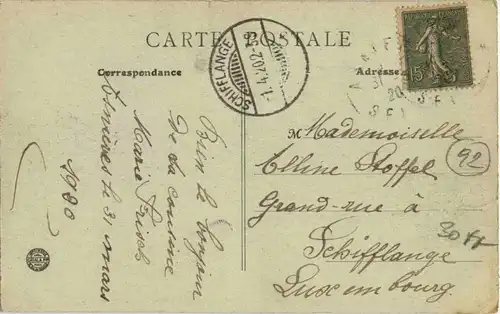 CARTE POSTALE
Correspondance
Adresse
SCHIFFLANGE
1.4.20.2-3
15
20
Bien le bonjour
de la cousine
Marie
le 31 mars
1920
M
Mademoiselle
Stoffel
Grand-rue à
Schifflange
Luxembourg.
92
30 fr